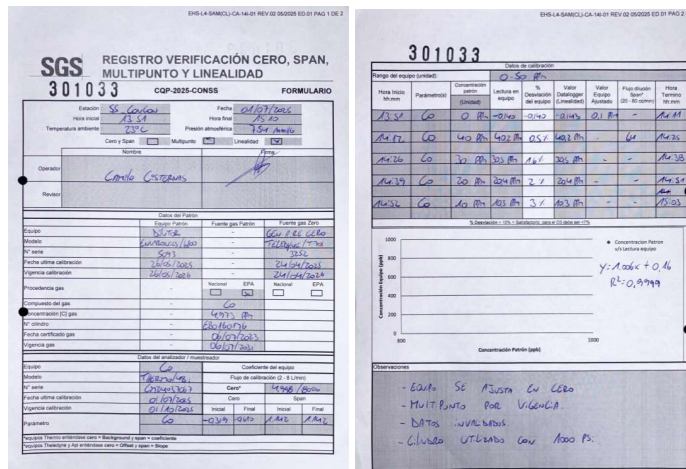 EHS-L4-SAM(CL)-CA-14I-01 REV 02 05/2025 ED.01 PAG 1 DE 2
SGS
REGISTRO VERIFICACIÓN CERO, SPAN,
MULTIPUNTO Y LINEALIDAD
301033 CQP-2025-CONSS FORMULARIO
Estación SS Fecha 01/07/2025
Hora inicial 13:51 Hora final 15:10
Temperatura ambiente 23°C Presión atmosférica 754 mmHg
Cero y Span Multipunto Linealidad
Nombre Firma
Operador Camilo Cisternas
Revisor
Datos del Patrón
Equipo Patrón Fuente gas Patrón Fuente gas Zero
Equipo DILUTOR - GEN AIRE CERO
Modelo - Teledyne/T701
N° serie 5093 - 3252
Fecha ultima calibración 26/05/2025 - 24/04/2025
Vigencia calibración 26/05/2026 - 24/04/2026
Procedencia gas - Nacional EPA Nacional EPA
Compuesto del gas - Co
Concentración [C] gas - 4973 PPm
N° cilindro - EB0160176
Fecha certificado gas - 06/07/2023
Vigencia gas - 06/07/2031
Datos del analizador / muestreador
Equipo Co Coeficiente del equipo
Modelo Thermo/48i Flujo de calibración (2 - 8 L/min)
N° serie Cero*
Fecha ultima calibración 01/07/2025 Cero Span
Vigencia calibración 01/10/2025 Inicial Final Inicial Final
Parámetro Co 1.142 1.142
*equipos Thermo entiéndase cero = Background y span = coeficiente
*equipos Teledyne y Api entiéndase cero = Offset y span = Slope
EHS-L4-SAM(CL)-CA-14I-01 REV 02 05/2025 ED.01
301033
Datos de calibración
Rango del equipo (unidad): 0-50 PPm
Hora Inicio hh:mm Parámetro(s) Concentración patrón (Unidad) Lectura en equipo % Desviación del equipo Valor Datalogger (Linealidad) Valor Equipo Ajustado Flujo dilución Span* (20 - 80 cc/min) Hora Termino hh:mm
13:51 Co 0 PPm -0,140 -0,140 -0,143 0,1 PPm - 14:11
14:12 Co 40 PPm 40,2 PPm 0,5% 40,2 PPm - 14:25
14:26 Co 30 PPm 30,5 PPm 1,6% 30,5 PPm - - 14:38
14:39 Co 20 PPm 20,4 PPm 2% 20,4 PPm - - 14:51
14:52 Co 10 PPm 10,3 PPm 3% 10,3 PPm - - 15:03
1000
800
600
400
200
0
800 1000
Concentración Equipo (ppb)
Concentración Patrón (ppb)
Concentracion Patron
v/s Lectura equipo
y=1.006x+0,16
R²=0,9999
Observaciones
- EQUIPO SE AJUSTA EN CERO
- MULTIPUNTO POR VIGENCIA.
- DATOS INVALIDADOS.
- CILINDRO UTILIZADO CON 1000 PSI.